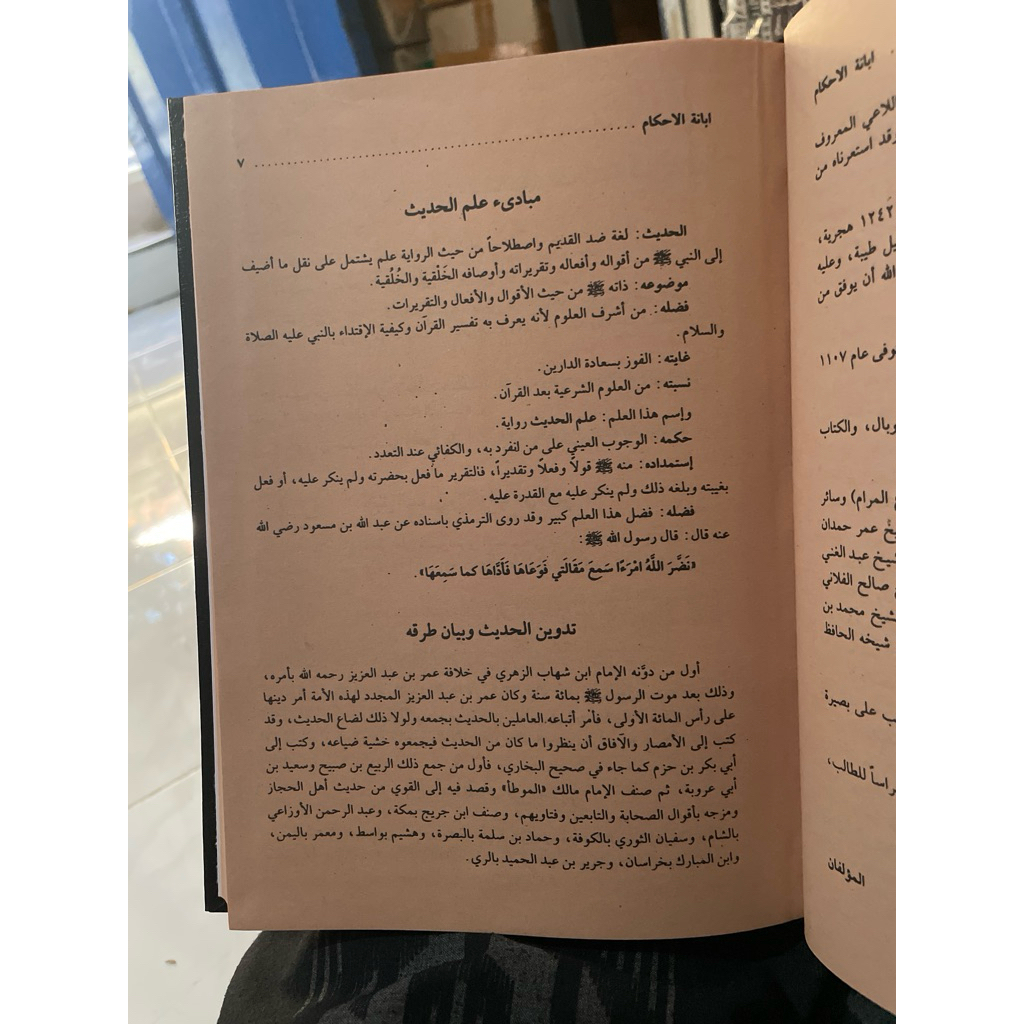 ابانة الاحكام ................................................ ٧
مبادىء علم الحديث
الحديث: لغة ضد القديم واصطلاحاً من حيث الرواية علم يشتمل على نقل ما أضيف
إلى النبي ﷺ من أقواله وأفعاله وتقريراته وأوصافه الخَلْقية والخُلُقية.
موضوعه: ذاته ﷺ من حيث الأقوال والأفعال والتقريرات.
فضله: من أشرف العلوم لأنه يعرف به تفسير القرآن وكيفية الإقتداء بالنبي عليه الصلاة
والسلام.
غايته: الفوز بسعادة الدارين.
نسبته: من العلوم الشرعية بعد القرآن.
وإسم هذا العلم: علم الحديث رواية.
حكمه: الوجوب العيني على من انفرد به، والكفائي عند التعدد.
إستمداده: منه ﷺ قولاً وفعلاً وتقديراً، فالتقرير ما فعل بحضرته ولم ينكر عليه، أو فعل
بغيبته وبلغه ذلك ولم ينكر عليه مع القدرة عليه.
فضله: فضل هذا العلم كبير وقد روى الترمذي باسناده عن عبد الله بن مسعود رضي الله
عنه قال: قال رسول الله ﷺ:
«نَضَّرَ اللَّهُ امْرَءًا سَمِعَ مَقَالَتي فَوَعَاهَا فَأَدَّاهَا كما سَمِعَهَا».
تدوين الحديث وبيان طرقه
أول من دوَّنه الإمام ابن شهاب الزهري في خلافة عمر بن عبد العزيز رحمه الله بأمره،
وذلك بعد موت الرسول ﷺ بمائة سنة وكان عمر بن عبد العزيز المجدد لهذه الأمة أمر دينها
على رأس المائة الأولى، فأمر أتباعه العاملين بالحديث بجمعه ولولا ذلك لضاع الحديث، وقد
كتب إلى الأمصار والآفاق أن ينظروا ما كان من الحديث فيجمعوه خشية ضياعه، وكتب إلى
أبي بكر بن حزم كما جاء في صحيح البخاري، فأول من جمع ذلك الربيع بن صبيح وسعيد بن
أبي عروبة، ثم صنف الإمام مالك «الموطأ» وقصد فيه إلى القوي من حديث أهل الحجاز
ومزجه بأقوال الصحابة والتابعين وفتاويهم، وصنف ابن جريج بمكة، وعبد الرحمن الأوزاعي
بالشام، وسفيان الثوري بالكوفة، وحماد بن سلمة بالبصرة، وهشيم بواسط، ومعمر باليمن،
وابن المبارك بخراسان، وجرير بن عبد الحميد بالري.
ابانة الاحكام
للاعي المعروف
وقد استعرناه من
١٢٤٢ هجرية،
طيبة، وعليه
الله أن يوفق من
عام ١١٠٧
والكتاب
المرام) وسائر
عمر حمدان
عبد الغني
صالح الفلاني
محمد بن
شيخه الحافظ
على بصيرة
للطالب،
المؤلفان